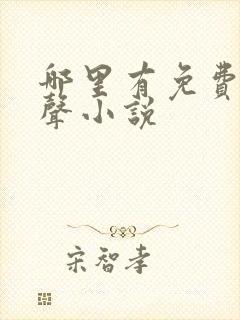 哪里有免費
聲小説
宋智孝